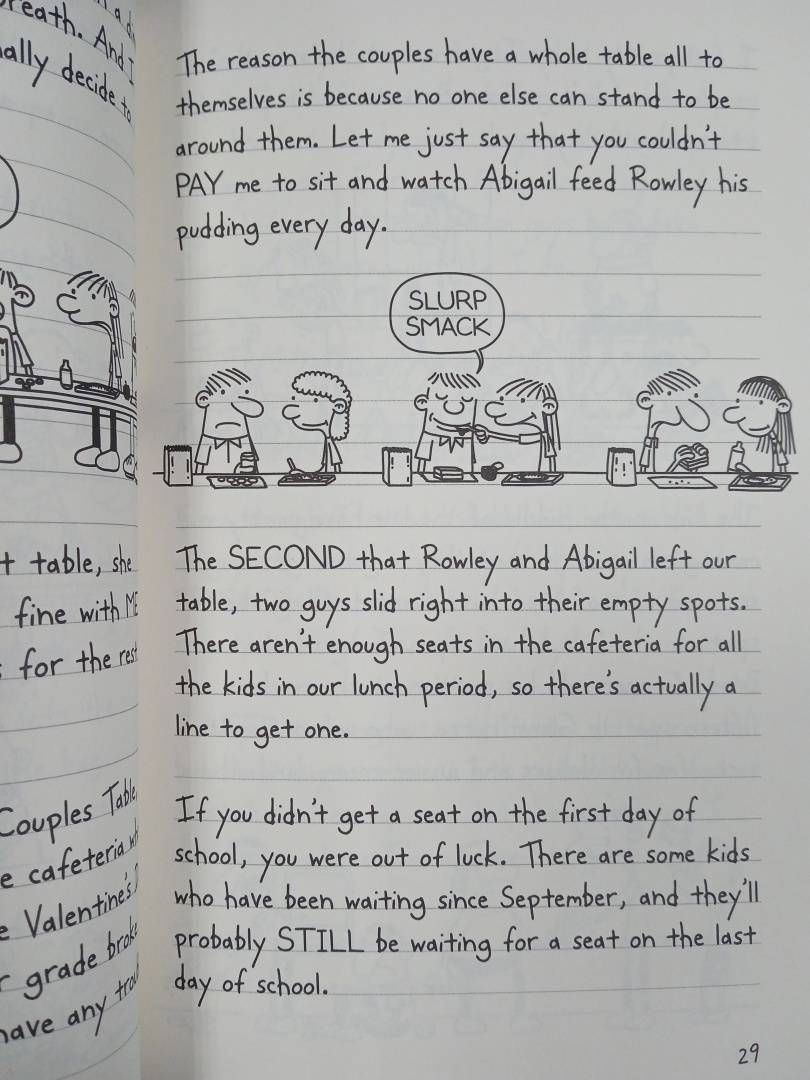 reath. And I
ally decide to
t table, she
fine with ME
for the rest
Couples Table
e cafeteria
e Valentine's
r grade broke
have any
The reason the couples have a whole table all to
themselves is because no one else can stand to be
around them. Let me just say that you couldn't
PAY me to sit and watch Abigail feed Rowley his
pudding every day.
SLURP
SMACK
The SECOND that Rowley and Abigail left our
table, two guys slid right into their empty spots.
There aren't enough seats in the cafeteria for all
the kids in our lunch period, so there's actually a
line to get one.
If you didn't get a seat on the first day of
school, you were out of luck. There are some kids
who have been waiting since September, and they'll
probably STILL be waiting for a seat on the last
day of school.
29